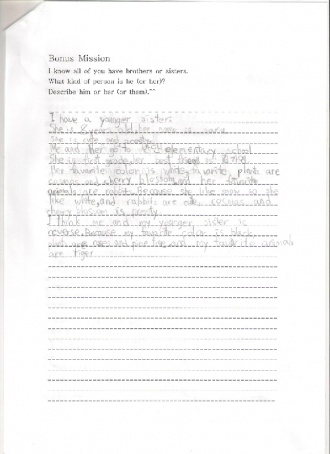 Bonus Mission
I know all of you have brothers or sisters.
What kind of person is he (or her)?
Describe him or her (or them).^^
I have a younger sister.
She is 8 years old, her name is
She is cute, and
Me and her go to elementary school.
She is first grade, her best friend is
Her favorite color is white, favorite plants are
cosmos and cherry blossom, and her favorite
animals are rabbit. Because she like snow, so she
like white, and rabbits are cute, cosmos and
cherry blossom is pretty.
I think me and my younger sister is
reverse. Because my favorite color is black,
plants are roses and pine tree, and my favorite animals
are tiger.